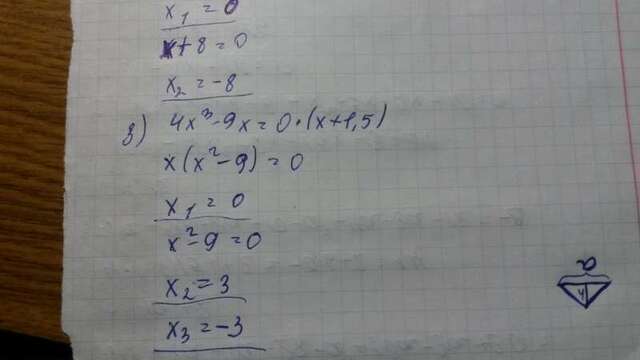 x₁ = 0
x + 8 = 0
x₂ = -8
з) 4x³ - 9x = 0 · (x + 1,5)
x(x² - 9) = 0
x₁ = 0
x² - 9 = 0
x₂ = 3
x₃ = -3
a
h